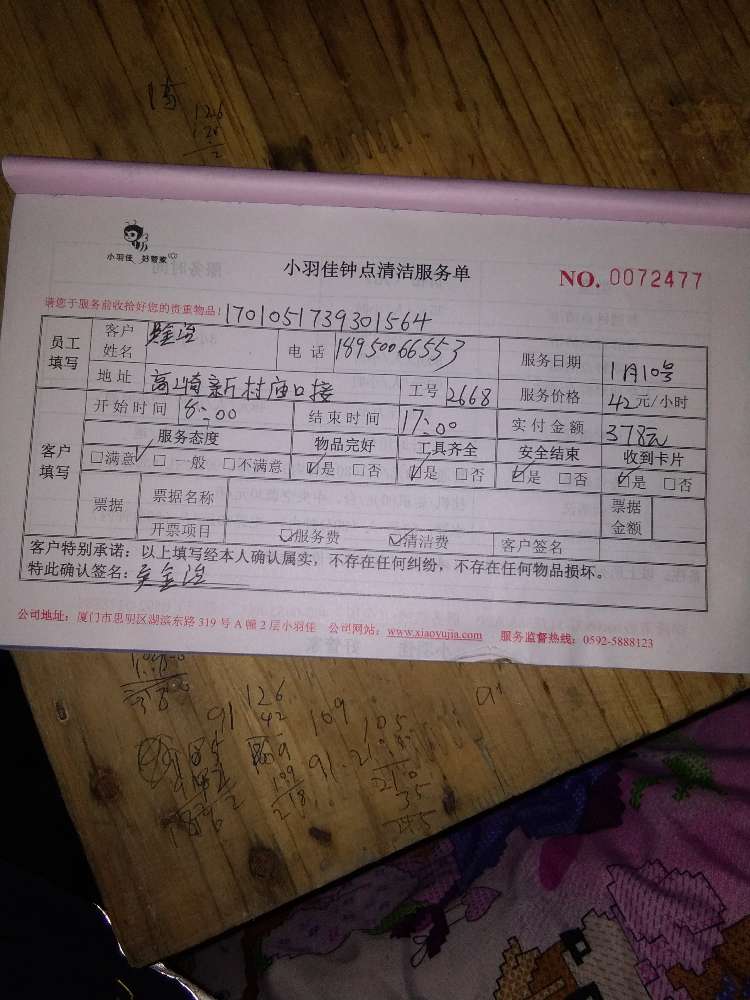 小羽佳 好管家
小羽佳钟点清洁服务单
NO. 0072477
请您于服务前收拾好您的贵重物品!
1701051739301564
员工填写 客户姓名 金治 电话 18950066553 服务日期 1月10号
地址 高崎新村庙口接 工号 2668 服务价格 42元/小时
客户填写 开始时间 8:00 结束时间 17:00 实付金额 378元
服务态度 物品完好 工具齐全 安全结束 收到卡片
□满意✓ □一般 □不满意 ☑是 □否 ☑是 □否 ☑是 □否 ☑是 □否
票据 票据名称 票据金额
开票项目 ☑服务费 ☑清洁费 客户签名
客户特别承诺:以上填写经本人确认属实,不存在任何纠纷,不存在任何物品损坏。
特此确认签名:吴金治
公司地址:厦门市思明区湖滨东路 319 号 A 幢 2 层小羽佳 公司网站:www.xiaoyujia.com 服务监督热线:0592-5888123
126
91 42 109 105
218
210
35
245